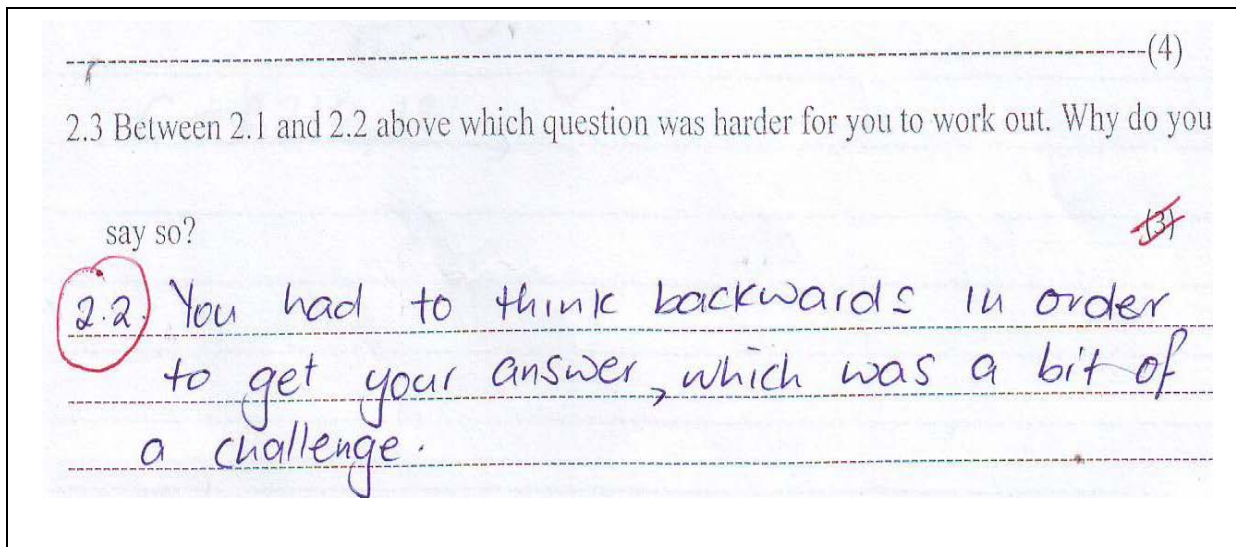 (4)
2.3 Between 2.1 and 2.2 above which question was harder for you to work out. Why do you
say so? (3)
2.2. You had to think backwards in order
to get your answer, which was a bit of
a challenge.